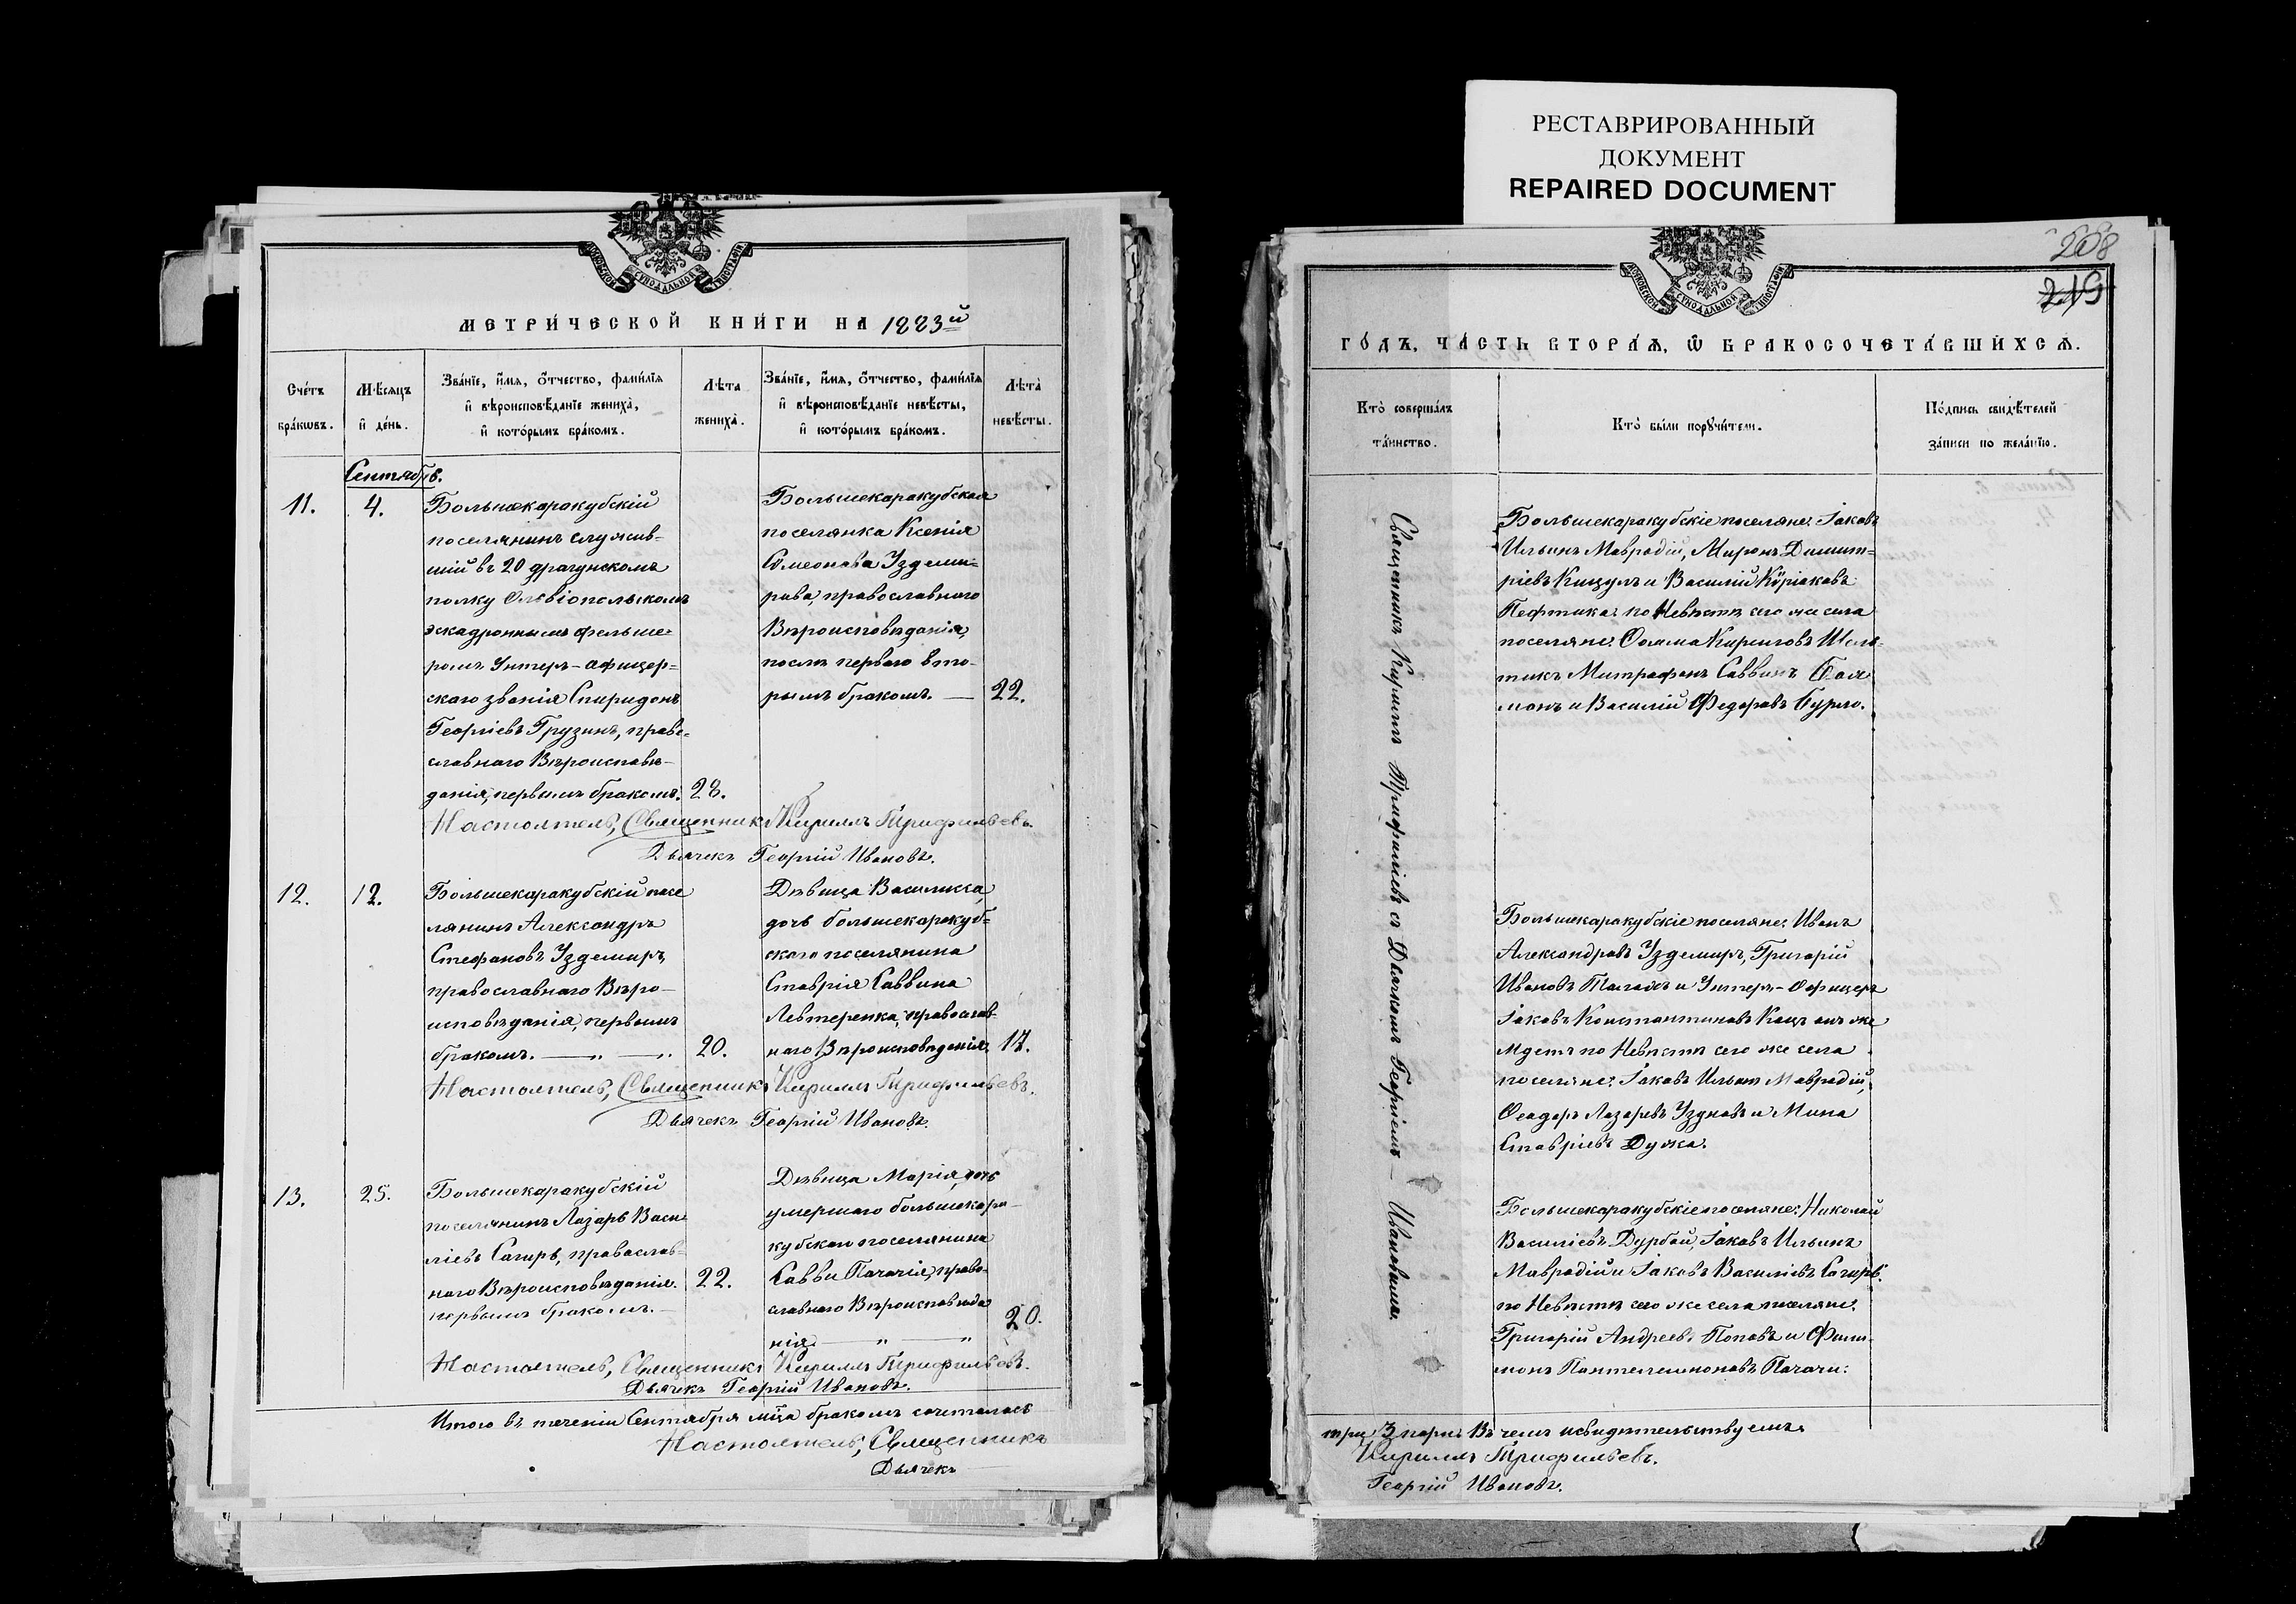 РЕСТАВРИРОВАННЫЙ
ДОКУМЕНТ
REPAIRED DOCUMENT
МОСКОВСКОЙ СѴНОДАЛЬНОЙ ТИПОГРАФІИ
МЕТРИ́ЧЕСКОЙ КНИ́ГИ НА 1883й
Сче́тъ
бра́кѡвъ.
Мѣ́сяцъ
и҆ де́нь.
Зва́нїе, и҆́мѧ, ѻ҆́тчество, фами́лїѧ
и҆ вѣроисповѣ́данїе жениха̀,
и҆ кото́рымъ бра́комъ.
Лѣ́та
жениха̀.
Зва́нїе, и҆́мѧ, ѻ҆́тчество, фами́лїѧ
и҆ вѣроисповѣ́данїе невѣ́сты,
и҆ кото́рымъ бра́комъ.
Лѣ́та
невѣ́сты.
Сентябрь.
11.
4.
Большекаракубскій
поселянинъ служив-
шій въ 20 драгунскомъ
полку Ольвіопольскомъ
эскадроннымъ фельше-
ромъ Унтеръ-офицер-
скаго званія Спиридонъ
Георгіевъ Грузинъ, право-
славнаго Вѣроисповѣ-
данія, первымъ бракомъ.
28.
Большекаракубская
поселянка Ксенія
Симеонова Уздеми-
рова, православнаго
Вѣроисповѣданія,
послѣ перваго вто-
рымъ бракомъ. —
22.
Настоятель, Священникъ Кириллъ Трифильевъ.
Дьячекъ Георгій Ивановъ.
12.
12.
Большекаракубскій посе
лянинъ Александръ
Стефановъ Уздемиръ,
православнаго Вѣро-
исповѣданія, первымъ
бракомъ. — „ — „
20.
Дѣвица Василисса,
дочь большекаракуб-
скаго поселянина
Ставрія Саввина
Левтеренка, православ-
наго Вѣроисповѣданія.
17.
Настоятель, Священникъ Кириллъ Трифильевъ.
Дьячекъ Георгій Ивановъ.
13.
25.
Большекаракубскій
поселянинъ Лазарь Васи
ліевъ Сагирь, православ-
наго Вѣроисповѣданія.
первымъ бракомъ. —
22.
Дѣвица Марія, дочь
умершаго большекара-
кубскаго поселянина
Саввы Пачачія, право-
славнаго Вѣроисповѣда
нія. — „ — „
20.
Настоятель, Священникъ Кириллъ Трифильевъ.
Дьячекъ Георгій Ивановъ.
Итого въ теченіи Сентября мц̃а бракомъ сочеталось
Настоятель, Священникъ
Дьячекъ
219
МОСКОВСКОЙ СѴНОДАЛЬНОЙ ТИПОГРАФІИ
ГО́ДЪ, ЧА́СТЬ ВТОРА́Ѧ, Ѡ҆ БРАКОСОЧЕТА́ВШИХСѦ.
Кто̀ соверша́лъ
та́инство.
Кто̀ бы́ли порꙋчи́тели.
По́дпись свидѣ́телей
за́писи по жела́нїю.
Священникъ Кириллъ Трифиліевъ съ Дьячкомъ Георгіемъ — Ивановымъ.
Большекаракубскіе поселяне: Іаковъ
Ильинъ Мавродій, Миронъ Димит-
ріевъ Кицулъ и Василій Кѵріаковъ
Пефтика: по Невѣстѣ сего же села
поселяне: Ѳома Кириловъ Шель-
тикъ Митрофанъ Саввинъ
монъ и Василій Федоровъ Бурло.
Большекаракубскіе поселяне: Иванъ
Александровъ Уздемиръ, Григорій
Ивановъ и Унтеръ-офицеръ
Іаковъ Константиновъ Кацъ онъ же
по Невѣстѣ сего же села
поселяне: Іаковъ Ильинъ Мавродій,
Ѳеодоръ Лазаревъ Уздновъ и Мина
Ставріевъ Дужа.
Большекаракубскіе поселяне: Николай
Василіевъ Дурбай, Іаковъ Ильинъ
Мавродій и Іаковъ Василіевъ Сагирь:
по Невѣстѣ сего же села поселяне:
Григорій Андреевъ Поповъ и Фили-
монъ Пантелеимоновъ Пачачи:
три 3 пары. Въ чемъ и свидѣтельствуемъ.
Кириллъ Трифильевъ.
Георгій Ивановъ.